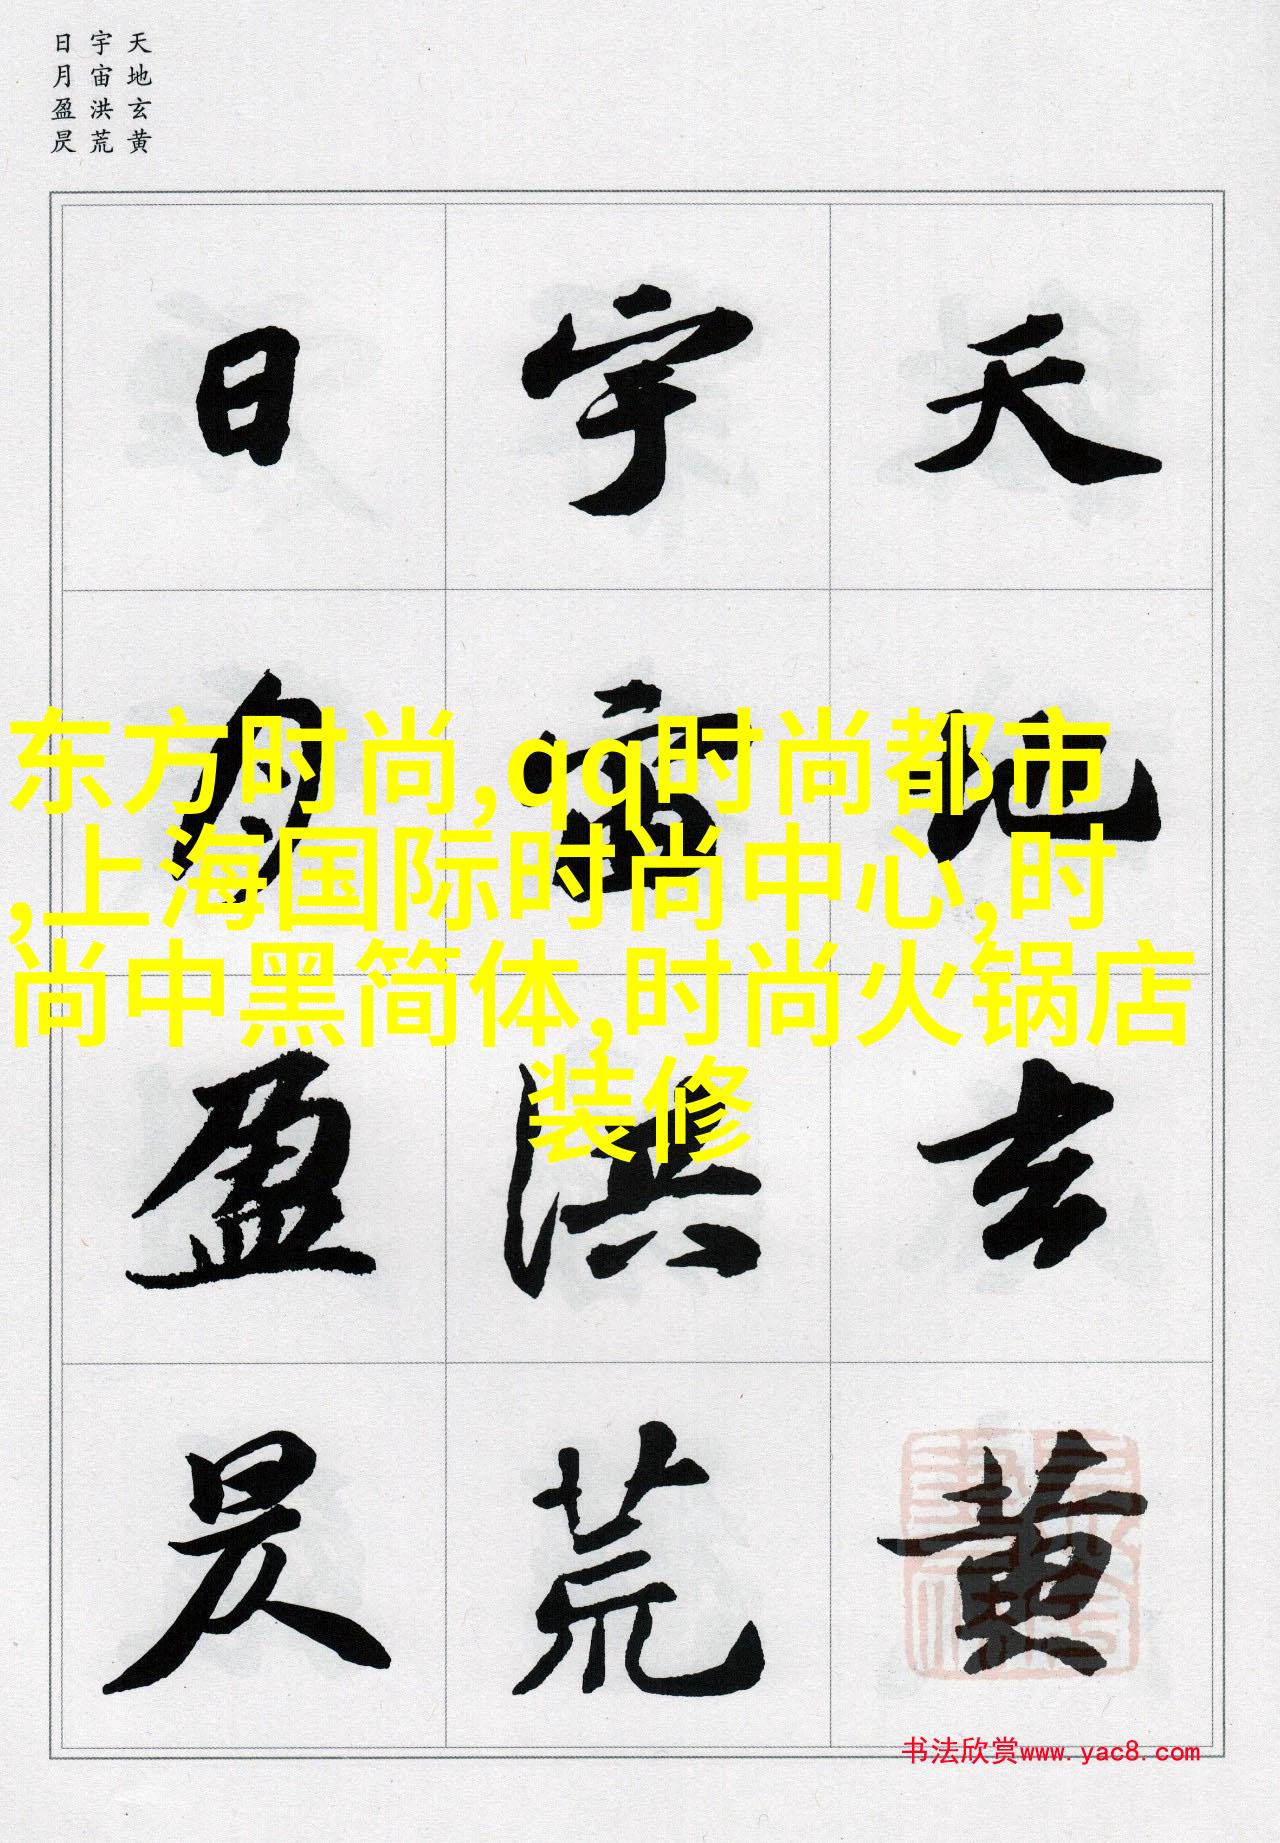 天地玄黄
宇宙洪荒
日月盈昃
天地玄黄
宇宙洪荒
日月盈昃
东方时尚,qq时尚都市
,上海国际时尚中心,时
尚中黑简体,时尚火锅店
装修
书法欣赏www.yac8.com